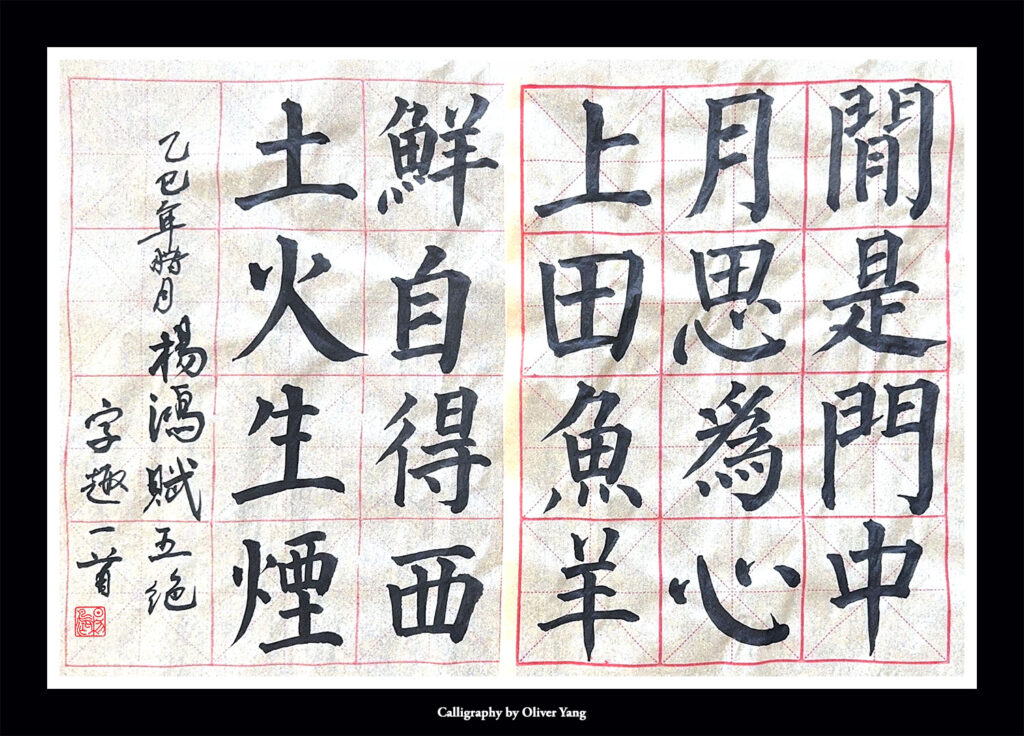 閒是門中
月思為心
上田魚羊
鮮自得西
土火生煙
乙巳年腊月楊鴻賦五绝
字趣一首
Calligraphy by Oliver Yang